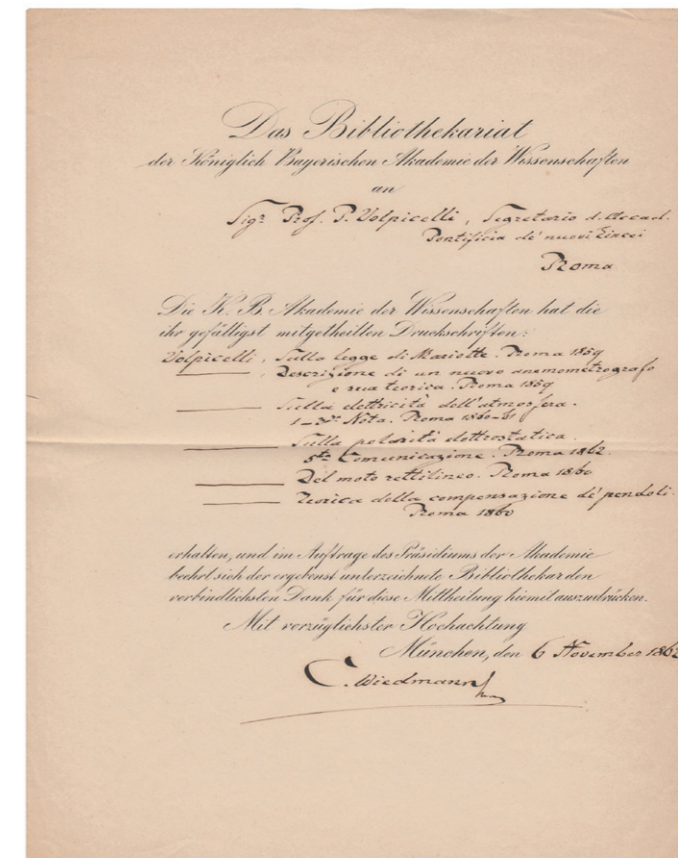 Das Bibliothekariat
der Königlich Bayerischen Akademie der Wissenschaften
an
Sigr Prof. P. Volpicelli, Segretorio d. Accad.
Pontificia de' nuovi Lincei
Roma
Die K. B. Akademie der Wissenschaften hat die
ihr gefälligst mitgetheilten Druckschriften:
Volpicelli, Sulla legge di Mariotte. Roma 1859
———, Descrizione di un nuovo anemometrografo
e sua teorica. Roma 1859
——— Sulla elettricità dell'atmosfera.
Nota. Roma 1860-61
——— Sulla polarità elettrostatica.
5ta Comunicazione. Roma 1862.
——— Del moto rettilineo. Roma 1860
——— Teorica della compensazione de' pendoli.
Roma 1860
erhalten, und im Auftrage des Präsidiums der Akademie
beehrt sich der ergebenst unterzeichnete Bibliothekar den
verbindlichsten Dank für diese Mittheilung hiemit auszudrücken.
Mit vorzüglichster Hochachtung
München, den 6 November 1862
C. Wiedmann